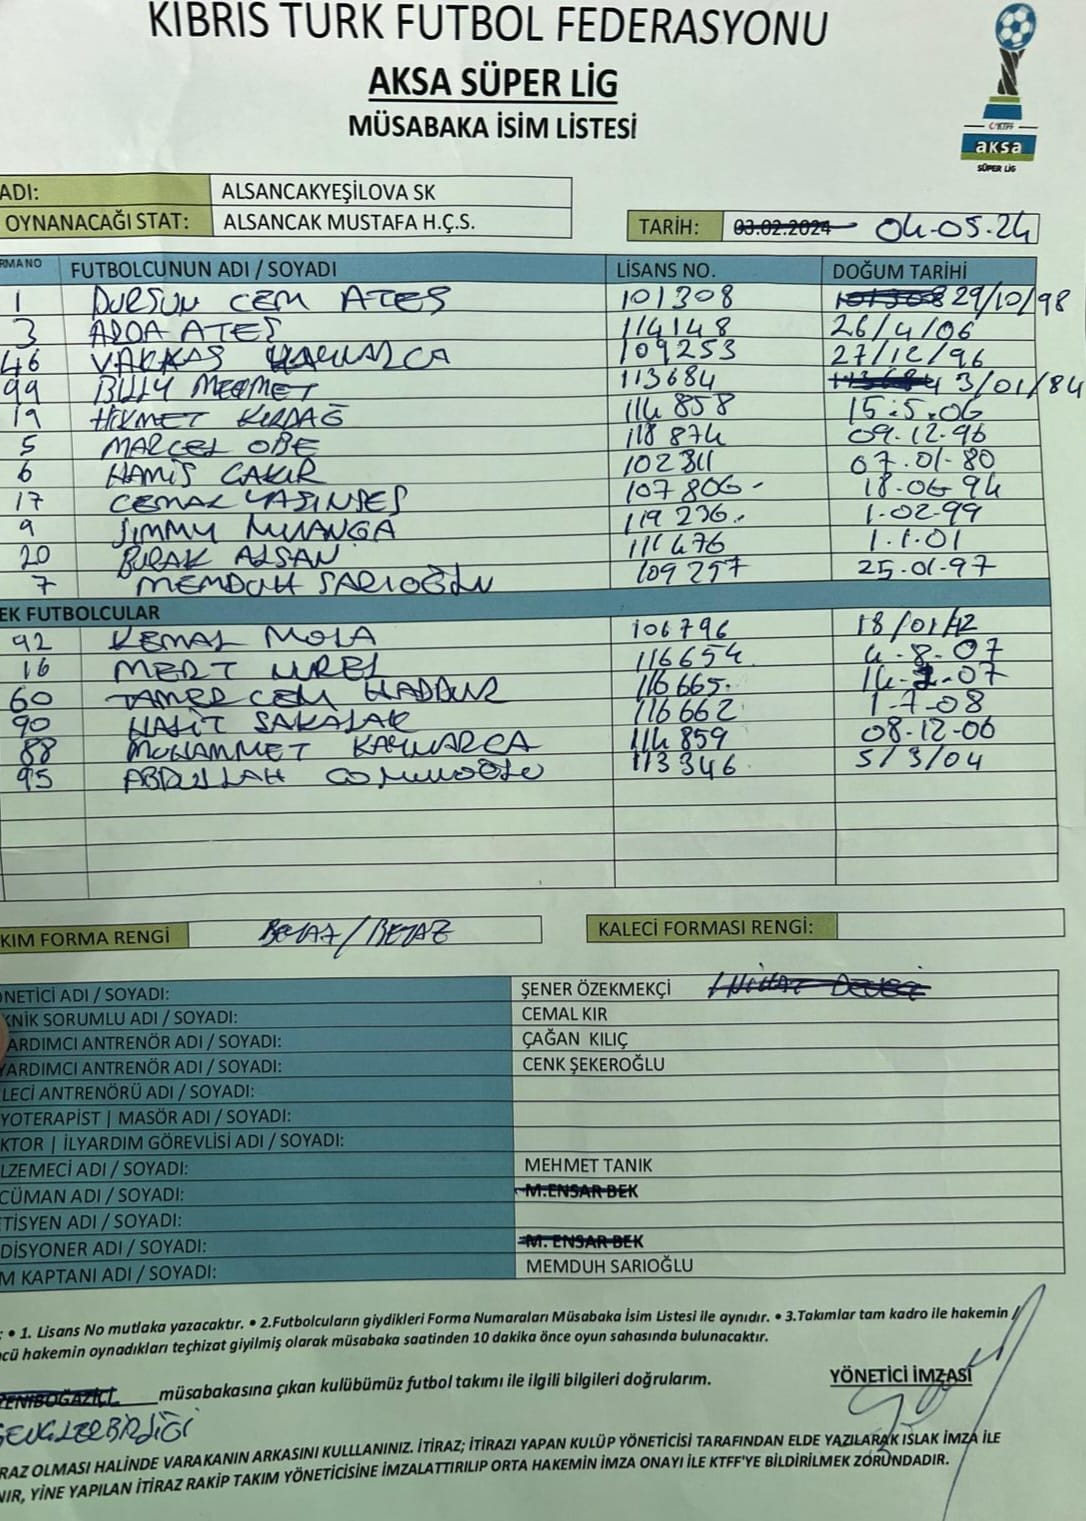 KIBRIS TÜRK FUTBOL FEDERASYONU
AKSA SÜPER LİG
MÜSABAKA İSİM LİSTESİ
KTFF
aksa
SÜPER LİG
ADI: ALSANCAKYEŞİLOVA SK
OYNANACAĞI STAT: ALSANCAK MUSTAFA H.Ç.S.
TARİH: 03.02.2024 04.05.24
RMA NO FUTBOLCUNUN ADI / SOYADI LİSANS NO. DOĞUM TARİHİ
1 DURSUN CEM ATEŞ 101308 101308 29/10/98
3 ARDA ATEŞ 114148 26/4/06
46 VAKKAS KAYNARCA 109253 27/12/96
99 BILLY MEHMET 113684 113684 3/01/84
19 HİKMET KIRDAĞ 114858 15.5.06
5 MARCEL OBE 118874 09.12.96
6 HAMİS ÇAKIR 102311 07.01-80
17 CEMAL YAŞINSES 107806 18.06.94
9 JIMMY 119236 1-02-99
20 BURAK ALSAN 111476 1.1.01
7 MEMDUH SARIOĞLU 109257 25.01-97
EK FUTBOLCULAR
92 KEMAL MOLA 106796 18/01/
16 MERT 116654 4-8-07
60 TAMER CEM HADDUR 116665 14--07
90 HALİT SAKALAR 116662 1-7-08
88 MUHAMMET KAYNARCA 114859 08-12-06
95 ABDULLAH 113346 5/3/04
KIM FORMA RENGİ BEYAZ/BEYAZ KALECİ FORMASI RENGİ:
ÖNETİCİ ADI / SOYADI: ŞENER ÖZEKMEKÇİ
KNİK SORUMLU ADI / SOYADI: CEMAL KIR
ARDIMCI ANTRENÖR ADI / SOYADI: ÇAĞAN KILIÇ
YARDIMCI ANTRENÖR ADI / SOYADI: CENK ŞEKEROĞLU
LECİ ANTRENÖRÜ ADI / SOYADI:
YOTERAPİST | MASÖR ADI / SOYADI:
KTOR | İLYARDIM GÖREVLİSİ ADI / SOYADI:
LZEMECİ ADI / SOYADI: MEHMET TANIK
CÜMAN ADI / SOYADI: M.ENSAR BEK
ETİSYEN ADI / SOYADI:
DİSYONER ADI / SOYADI: M. ENSAR BEK
M KAPTANI ADI / SOYADI: MEMDUH SARIOĞLU
: • 1. Lisans No mutlaka yazacaktır. • 2.Futbolcuların giydikleri Forma Numaraları Müsabaka İsim Listesi ile aynıdır. • 3.Takımlar tam kadro ile hakemin /
ncü hakemin oynadıkları teçhizat giyilmiş olarak müsabaka saatinden 10 dakika önce oyun sahasında bulunacaktır.
YENİBOĞAZİÇİ müsabakasına çıkan kulübümüz futbol takımı ile ilgili bilgileri doğrularım. YÖNETİCİ İMZASI
GENÇLERBİRLİĞİ
RAZ OLMASI HALİNDE VARAKANIN ARKASINI KULLLANINIZ. İTİRAZ; İTİRAZI YAPAN KULÜP YÖNETİCİSİ TARAFINDAN ELDE YAZILARAK ISLAK İMZA İLE
NIR, YİNE YAPILAN İTİRAZ RAKİP TAKIM YÖNETİCİSİNE İMZALATTIRILIP ORTA HAKEMİN İMZA ONAYI İLE KTFF'YE BİLDİRİLMEK ZORUNDADIR.